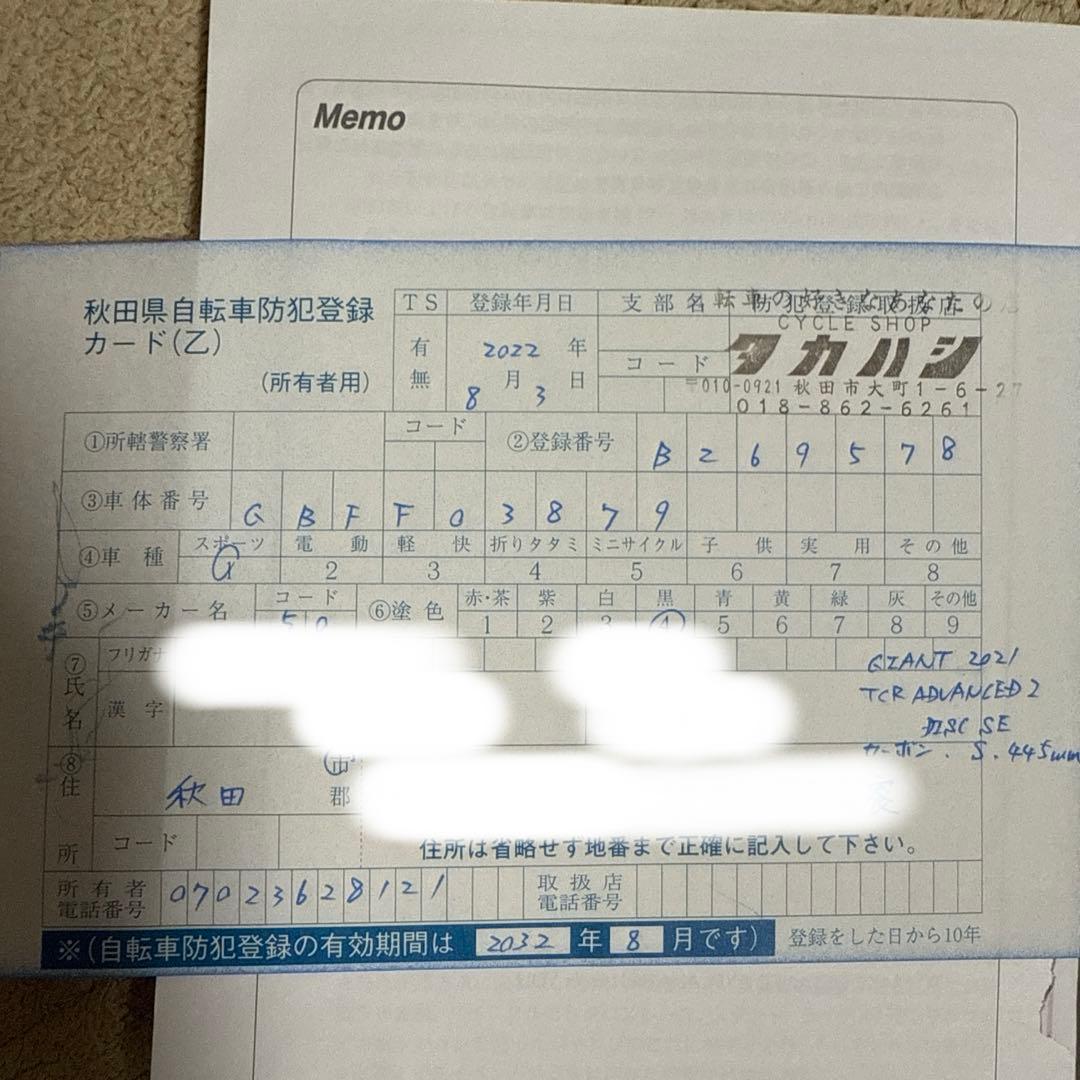 Memo
秋田県自転車防犯登録
カード(乙)
(所有者用)
TS 登録年月日 支部名 防犯登録取扱店
有 無
2022 年
8 月 3 日
コード
転車の好きなあなたの店
CYCLE SHOP
タカハシ
〒010-0921 秋田市大町1-6-27
018-862-6261
①所轄警察署 コード ②登録番号 B269578
③車体番号 GBFF03879
④車種 スポーツ 電動 軽快 折りタタミ ミニサイクル 子供 実用 その他
2 3 4 5 6 7 8
⑤メーカー名 コード 50 ⑥塗色 赤・茶 紫 白 黒 青 黄 緑 灰 その他
1 2 3 4 5 6 7 8 9
⑦氏名 フリガナ
漢字
GIANT 2021
TCR ADVANCED 2
DISC SE
カーボン. S. 445mm
⑧住所 秋田 市 郡
コード
住所は省略せず地番まで正確に記入して下さい。
所有者電話番号 07023628121 取扱店電話番号
※(自転車防犯登録の有効期間は 2032 年 8 月です) 登録をした日から10年